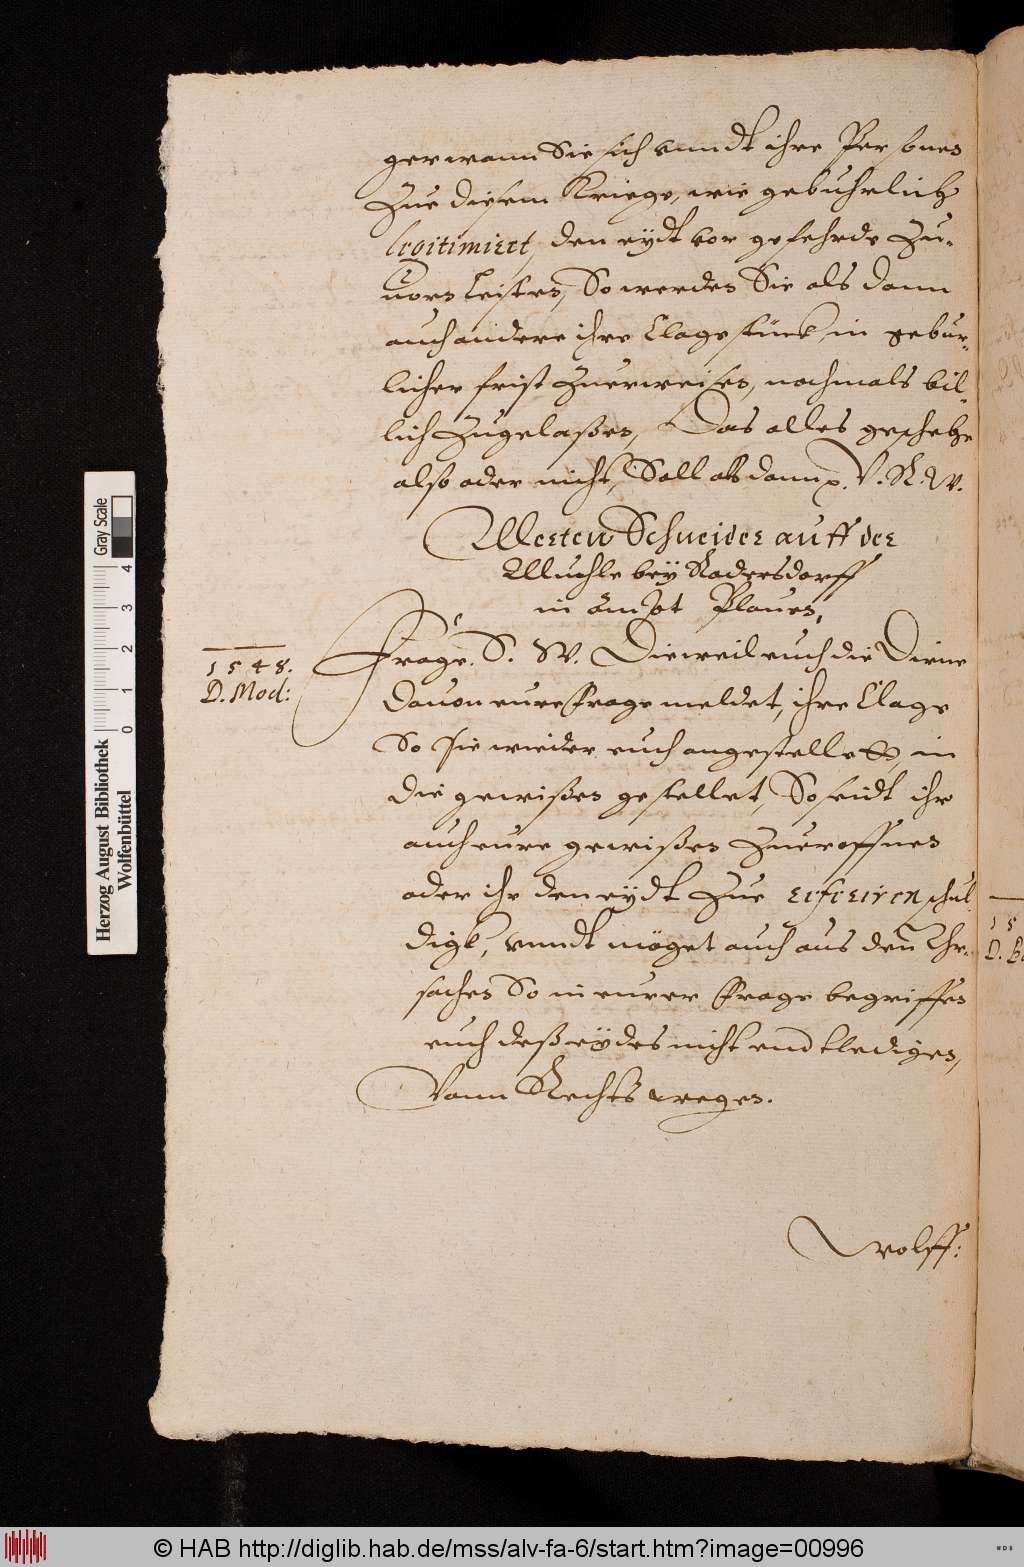 ger wann Sie sich vnndt ihre Persones
Zue diesem Kriege, wie gebuhrlich
legitimiert, den eydt vor gefehrde Zu-
uorn leisten, So werden Sie als dann
auch andere ihre Clagestück, in gebur-
licher frist Zuerweisen, nochmals bil-
lich Zugelaßen, Das alles geschehe
also oder nicht, Soll als dann p. V. R. W.
Merten Schneider auff der
Muhle bey Radersdorff
in Ambt Plauen,
1548.
D. Mod:
Frage. S. W. Dieweil euch die Dirne
dauon eure Frage meldet, ihre Clage
So sie wieder euch angestellet, in
die gewißen gestellet, So seidt ihr
auch eure gewißen Zueroffnen
oder ihr den eydt Zue referiren schul
digk, vnndt möget auch aus den Vhr-
sachen So in eurer Frage begriffen
euch deß eydes nicht endtledigen,
Vonn Rechts wegen.
Wolff:
15
D.
Herzog August Bibliothek
Wolfenbüttel
0 1 2 3 4
Gray Scale
© HAB http://diglib.hab.de/mss/alv-fa-6/start.htm?image=00996
WDB